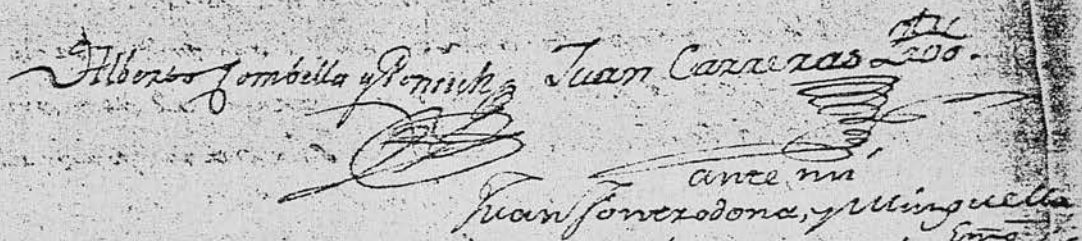 Alberto Combella y Renich Juan Carreras
ante mi
Juan Fontrodona, y Minguella